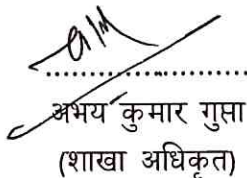 ..............................
अभय कुमार गुप्ता
(शाखा अधिकृत)